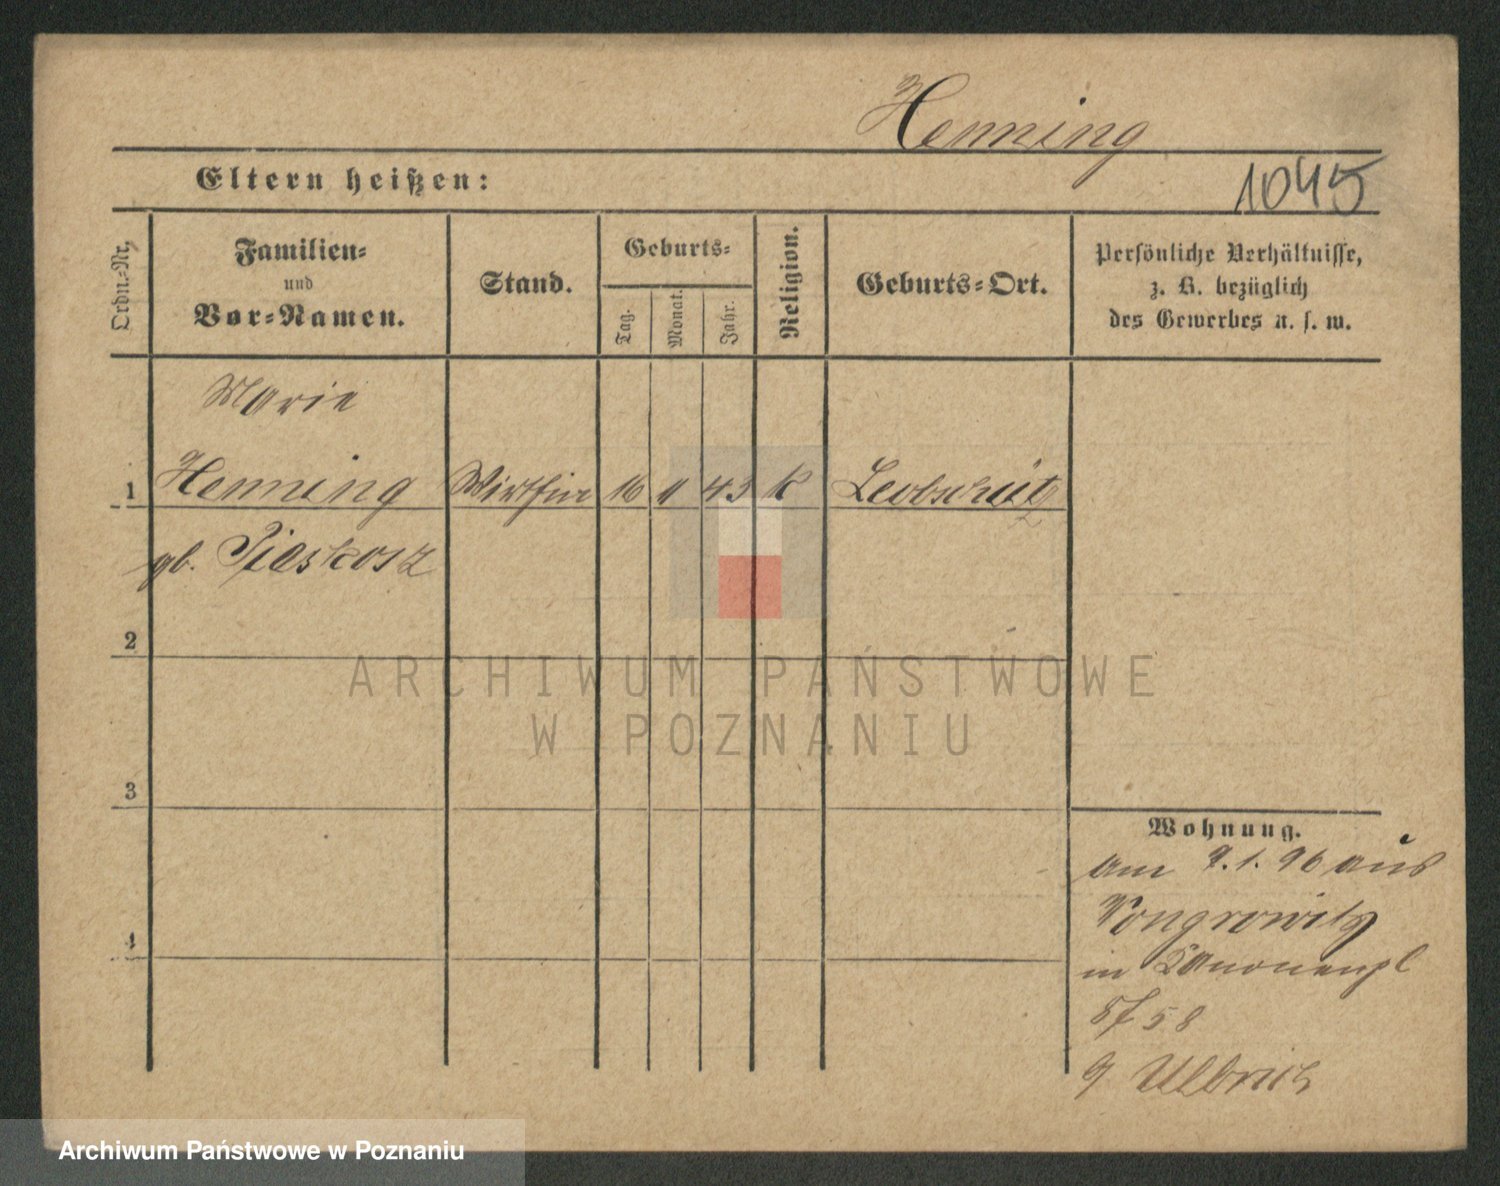 Henning
Eltern heißen:
1045
Ordn.-Nr.
Familien-
und
Vor-Namen.
Stand.
Geburts-
Tag.
Monat.
Jahr.
Religion.
Geburts-Ort.
Persönliche Verhältnisse,
z. B. bezüglich
des Gewerbes u. s. w.
Marie
1 Henning Wirthin 16 11 43 K Leobschütz
gb. Piaskosz
2
3
4
Wohnung.
am 9.1.96 aus
Wongrowitz
in Kanonenpl
58
Ulbrich
ARCHIWUM PAŃSTWOWE
W POZNANIU
Archiwum Państwowe w Poznaniu